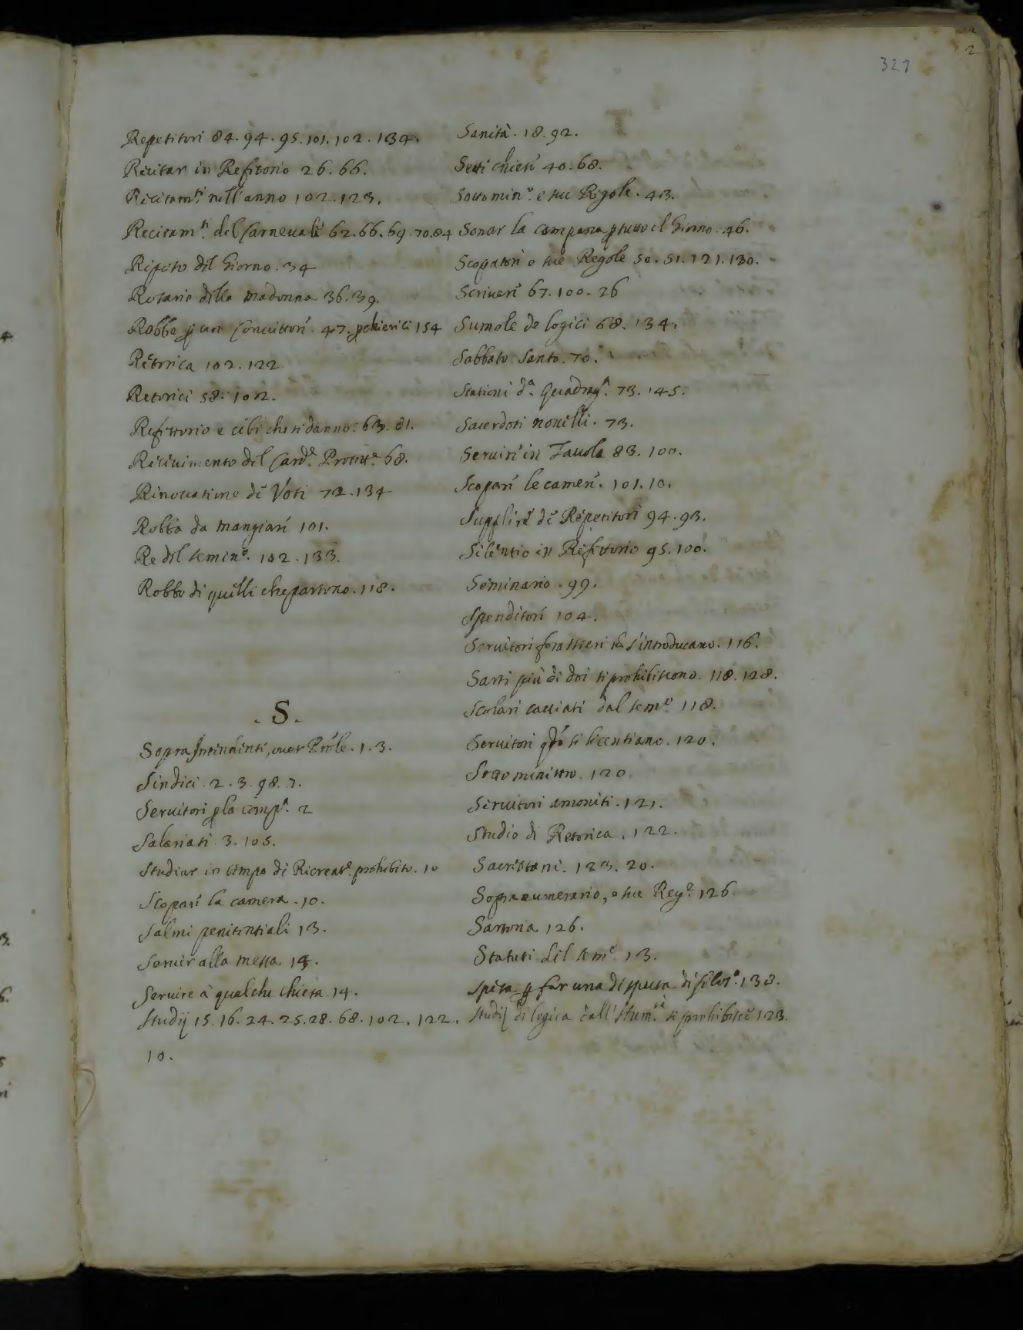 327
2
Repetitori 84. 94. 95. 101. 102. 134.
Recitar in Refitorio 26. 66.
Recitam.ti nell'anno 102. 123.
Recitam.ti del Carneuale 62. 66. 69. 70. 84
Riposo del Giorno. 34
Rosario della Madonna 36. 39.
Robba p uso Conuittori. 47. p chierici 154
Retorica 102. 122
Retorici 58. 102.
Refittorio e cibi che si danno. 63. 81.
Riceuimento del Card.e 68.
Rinouatione de Voti 72. 134
Robba da mangiari 101.
Re del semin.o 102. 133.
Robba di quelli che partono. 118.
. S .
Sopra Intendenti, 1. 3.
Sindici 2. 3. 98. 7.
Seruitori p la comp.a 2
Salariati 3. 105.
Studiar in tempo di Ricreat.e prohibito. 10
Scopari la camera. 10.
Salmi penitentiali 13.
Seruir alla messa 14.
Seruire à qualche chiesa 14.
Studij 15. 16. 24. 25. 28. 68. 102. 122.
10.
Sanità. 18. 92.
40. 68.
Sottomin.o e sue Regole. 43.
Sonar la campana p tutto il Giorno. 46.
Scopatori e sue Regole 50. 51. 121. 130.
Scriueri 67. 100. 26
Sumole de logici 68. 134.
Sabbato Santo. 70.
Stationi d.a Quadrag.a 73. 145.
Sacerdoti nouelli. 73.
Seruiri in Tauola 83. 100.
Scopari le cameri. 101. 10.
Supplire de Repetitori 94. 93.
Silentio in Refittorio 95. 100.
Seminario. 99.
Spenditori 104.
Seruitori forastieri s'introducano. 116.
Sarti più di doi si prohibiscono. 118. 128.
Scolari cacciati dal sem.o 118.
Seruitori qdo si licentiano. 120.
Sottoministro. 120.
Seruitori amoniti. 121.
Studio di Retorica. 122.
Sacristani. 123. 20.
Sopranumerario, e sue Reg.e 126
Sartoria 126.
Statuti del sem.o 13.
Spesa p far una disputa di filos.a 138.
Studij di logica dall' si prohibisce 123.